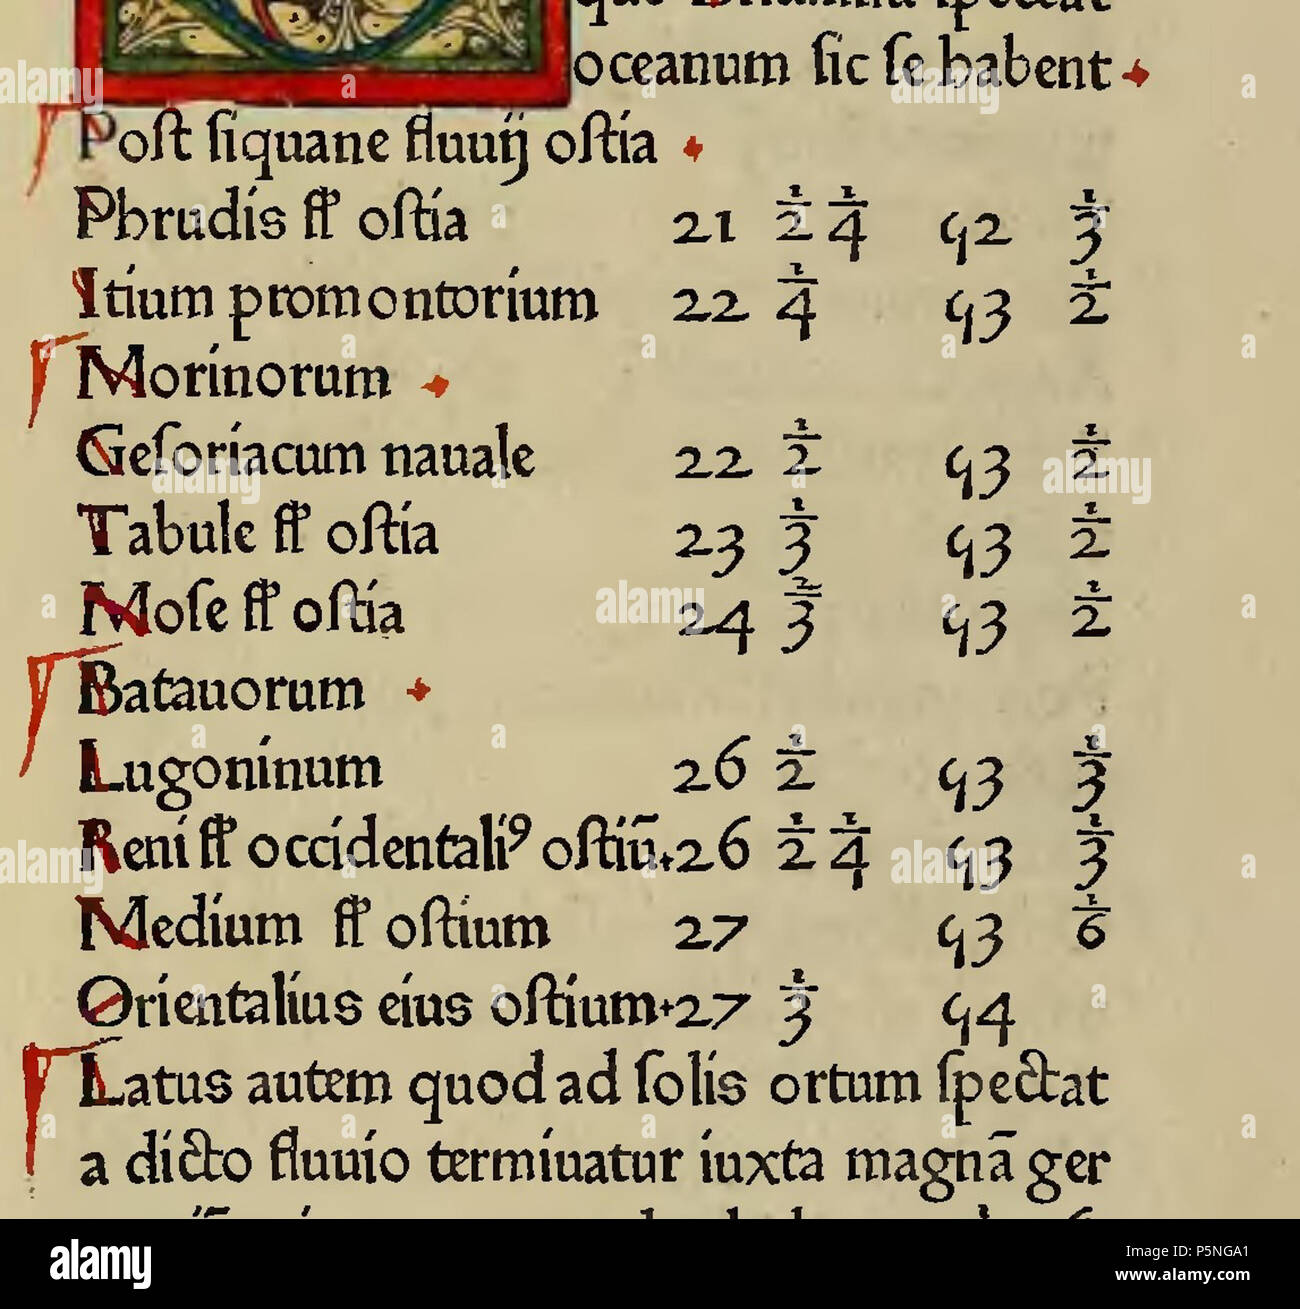 oceanum sic se habent
Post siquane fluuij ostia
Phrudis fl' ostia 21 1/2 1/4 53 1/3
Itium promontorium 22 1/4 53 1/2
Morinorum
Gesoriacum nauale 22 1/2 53 1/2
Tabule fl' ostia 23 1/3 53 1/2
Mose fl' ostia 24 2/3 53 1/2
Batauorum
Lugoninum 26 1/2 53 1/3
Reni fl' occidentaliꝰ ostiū 26 1/2 1/4 53 1/3
Medium fl' ostium 27 53 1/6
Orientalius eius ostium 27 1/3 54
Latus autem quod ad solis ortum spectat
a dicto fluuio termiuatur iuxta magnā ger
alamy
Image ID: P5NGA1
www.alamy.com